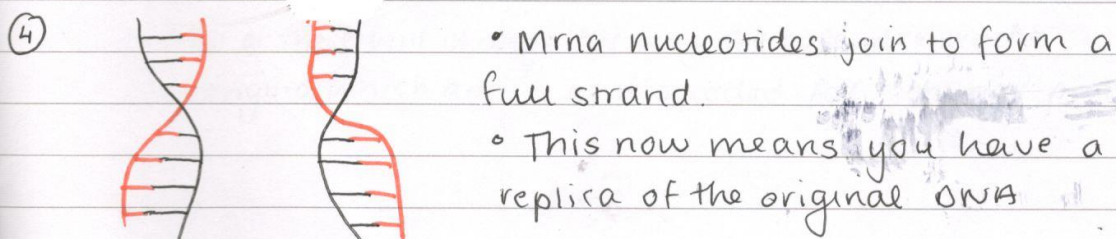 ④
• Mrna nucleotides join to form a
full strand.
• This now means you have a
replica of the original DNA